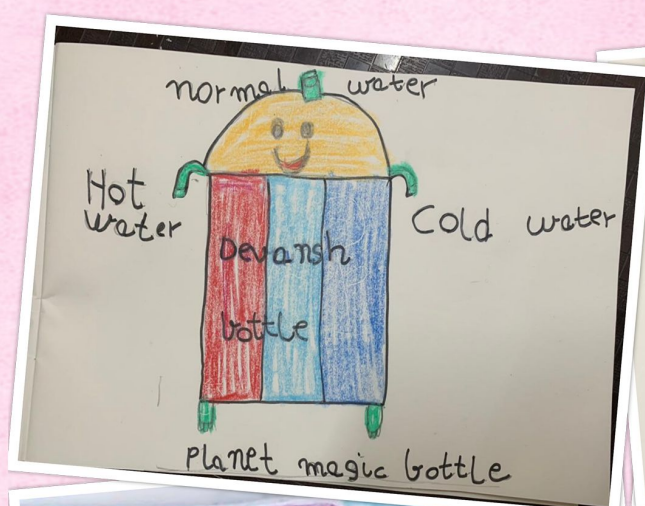 normal water
Hot
water
Cold water
Devansh
bottle
Planet magic bottle